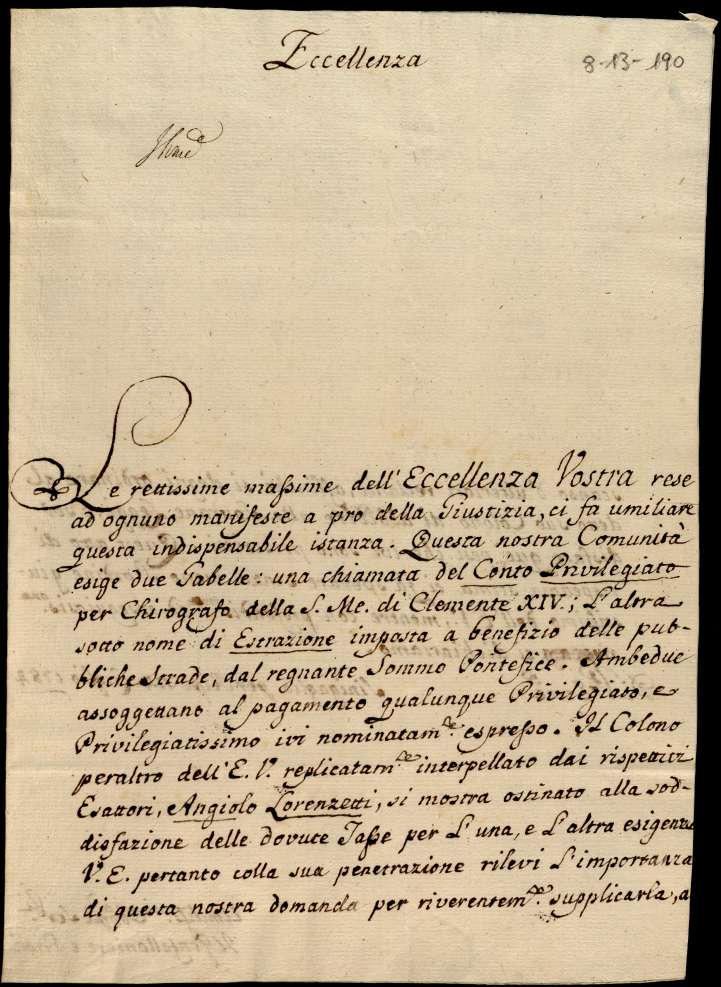 Eccellenza
8-13-190
Le rettissime massime dell'Eccellenza Vostra rese
ad ognuno manifeste a pro della Giustizia, ci fa umiliare
questa indispensabile istanza. Questa nostra Comunità
esige due Tabelle: una chiamata del Conto Privilegiato
per Chirografo della S. Me. di Clemente XIV; L'altra
sotto nome di Estrazione imposta a benefizio delle pub-
bliche Strade, dal regnante Sommo Pontefice. Ambedue
assoggettano al pagamento qualunque Privilegiato, e
Privilegiatissimo ivi nominatam.te espresso. Il Colono
peraltro dell'E. V. replicatam.te interpellato dai rispettivi
Esattori, Angiolo Lorenzetti, si mostra ostinato alla sod-
disfazione delle dovute Tasse per L'una, e L'altra esigenza
V. E. pertanto colla sua penetrazione rilevi L'importanza
di questa nostra domanda per riverentem.te supplicarla, a